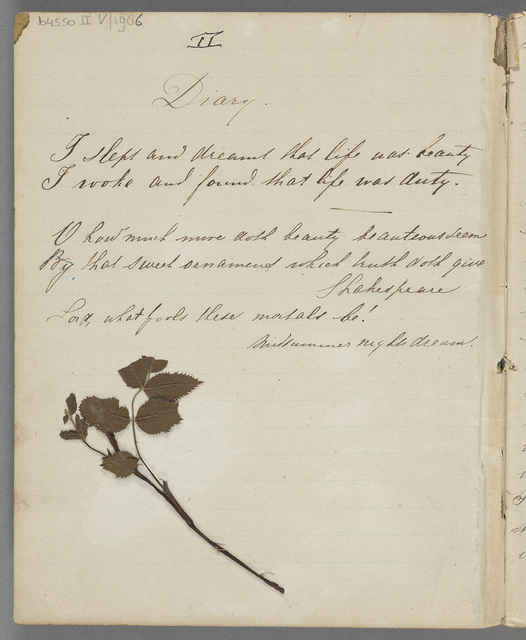 b4550 II V/1906
II
Diary.
I slept and dreamt that life was beauty
I woke and found that life was duty.
O how much more doth beauty beauteous seem
By that sweet ornament which truth doth give
Shakespeare
Lord, what fools these mortals be!
Midsummer nights dream.